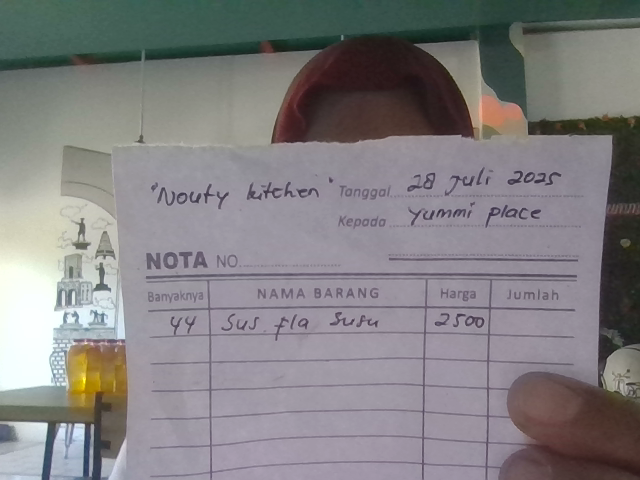 "Nouty kitchen" Tanggal 28 Juli 2025
Kepada Yummi place
NOTA NO.
Banyaknya NAMA BARANG Harga Jumlah
44 Sus fla susu 2500